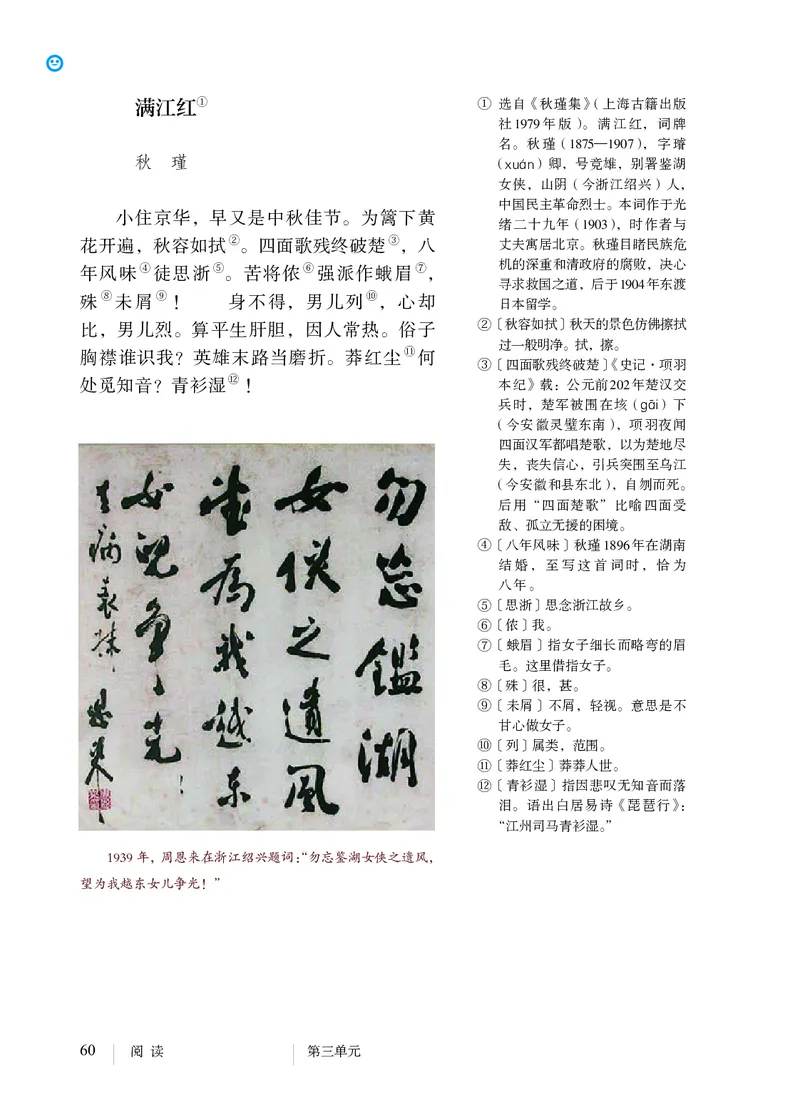 满江红①
秋 瑾
小住京华，早又是中秋佳节。为篱下黄
花开遍，秋容如拭②。四面歌残终破楚③，八
年风味④徒思浙⑤。苦将侬⑥强派作蛾眉⑦，
殊⑧未屑⑨！ 身不得，男儿列⑩，心却
比，男儿烈。算平生肝胆，因人常热。俗子
胸襟谁识我？英雄末路当磨折。莽红尘⑪何
处觅知音？青衫湿⑫！
勿忘鑑湖
女侠之遺風
望为我越东
女兒争光！
去病表妹
恩来
1939 年，周恩来在浙江绍兴题词：“勿忘鉴湖女侠之遗风，
望为我越东女儿争光！”
① 选自《秋瑾集》（上海古籍出版
社1979年版）。满江红，词牌
名。秋瑾（1875—1907），字璿
（xuán）卿，号竞雄，别署鉴湖
女侠，山阴（今浙江绍兴）人，
中国民主革命烈士。本词作于光
绪二十九年（1903），时作者与
丈夫寓居北京。秋瑾目睹民族危
机的深重和清政府的腐败，决心
寻求救国之道，后于1904年东渡
日本留学。
②〔秋容如拭〕秋天的景色仿佛擦拭
过一般明净。拭，擦。
③〔四面歌残终破楚〕《史记·项羽
本纪》载：公元前202年楚汉交
兵时，楚军被围在垓（gāi）下
（今安徽灵璧东南），项羽夜闻
四面汉军都唱楚歌，以为楚地尽
失，丧失信心，引兵突围至乌江
（今安徽和县东北），自刎而死。
后用“四面楚歌”比喻四面受
敌、孤立无援的困境。
④〔八年风味〕秋瑾1896年在湖南
结婚，至写这首词时，恰为
八年。
⑤〔思浙〕思念浙江故乡。
⑥〔侬〕我。
⑦〔蛾眉〕指女子细长而略弯的眉
毛。这里借指女子。
⑧〔殊〕很，甚。
⑨〔未屑〕不屑，轻视。意思是不
甘心做女子。
⑩〔列〕属类，范围。
⑪〔莽红尘〕莽莽人世。
⑫〔青衫湿〕指因悲叹无知音而落
泪。语出白居易诗《琵琶行》：
“江州司马青衫湿。”
60 阅 读 第三单元